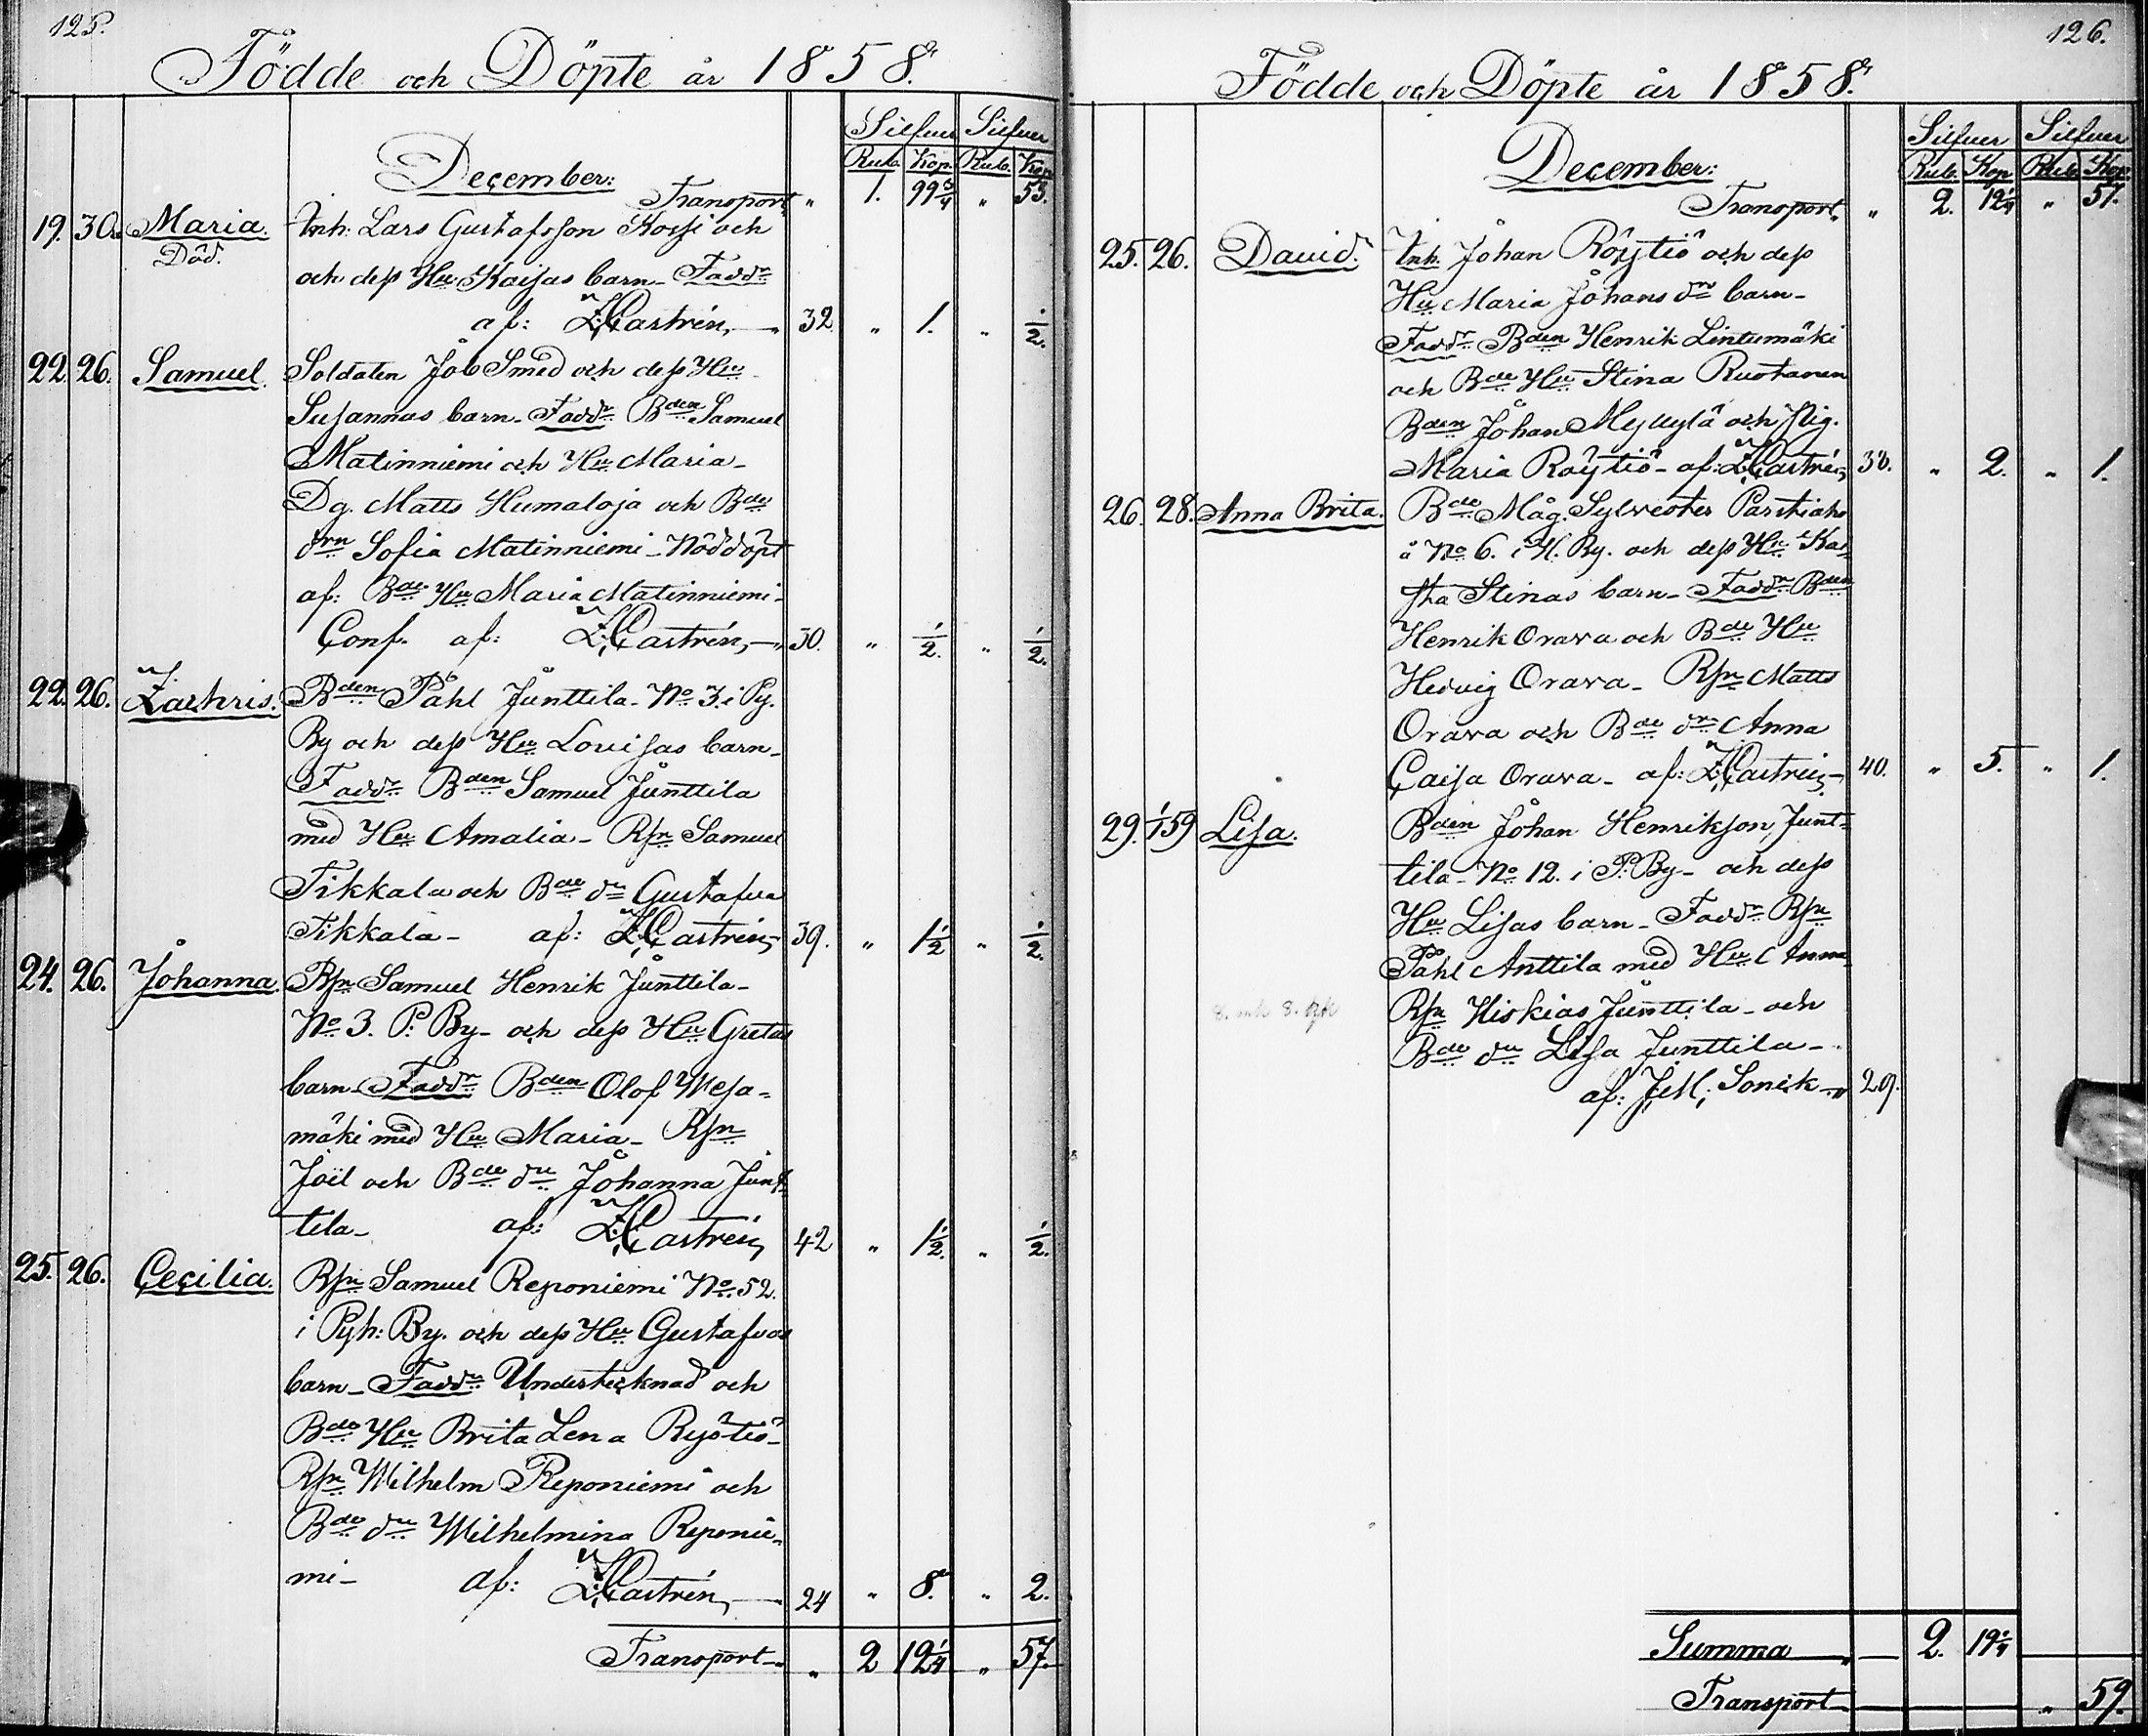 125.
Födde och Döpte år 1858.
Silfver Silfver
Rub. Kop. Rub. Kop.
December:
Transport " 1. 99 3/4 " 53.
19. 30. Maria. Inh. Lars Gustafsson Korsi och
Död.
och dess Hu Kaisas barn - Faddr
af: Z. Castrén, 32 " 1. " 1/2.
22. 26. Samuel. Soldaten Job Smed och dess Hu
Susannas barn - Faddr Bden Samuel
Matinniemi och Hu Maria -
Dg. Matts Humaloja och Bde
drn Sofia Matinniemi - Nöddöpt
af: Bde Hu Maria Matinniemi -
Conf. af: Z. Castrén, 30. " 1/2. " 1/2.
22. 26. Zachris. Bden Påhl Junttila - No 3. i Py.
By och dess Hu Lovisas barn -
Faddr Bden Samuel Junttila
med Hu Amalia - Rsn Samuel
Tikkala och Bde dn Gustafva
Tikkala - af: Z. Castrén, 39. " 1 1/2 " 1/2.
24. 26. Johanna. Rsn Samuel Henrik Junttila -
No 3. P: By - och dess Hu Gretas
barn - Faddr Bden Olof Wesa=
mäki med Hu Maria - Rsn
Joel och Bde dn Johanna Junt=
tila - af: Z. Castrén, 42 " 1 1/2. " 1/2.
25. 26. Cecilia. Rsn Samuel Reponiemi No 52.
i Pyh: By. och dess Hu Gustafvas
barn - Faddr Undertecknad och
Bde Hu Brita Lena Rystiö -
Rsn Wilhelm Reponiemi och
Bde dn Wilhelmina Reponie=
mi - af: Z. Castrén, 24 " 8. " 2.
Transport " 2 12 1/4 " 57.
126.
Födde och Döpte år 1858.
Silfver Silfver
Rub. Kop. Rub. Kop.
December:
Transport " 2. 12 1/4 " 57.
25. 26. David. Inh. Johan Röytiö och dess
Hu Maria Johans dn barn -
Faddr Bden Henrik Lintumäki
och Bde Hu Stina Ruotanen
Bden Johan Myllylä och Pig.
Maria Röytiö - af: Z. Castrén, 38. " 2. " 1.
26. 28. Anna Brita. Bde Måg. Sylvester
å No 6. i H. By. och dess Hu Kai=
sa Stinas barn - Faddr Bden
Henrik Orava och Bde Hu
Hedvig Orava - Rsn Matts
Orava och Bde dn Anna
Caisa Orava - af: Z. Castrén, 40. " 5. " 1.
29. 1/1 59 Lisa. Bden Johan Henriksson Junt=
tila - No 12. i P: By - och dess
Hu Lisas barn - Faddr Rsn
Påhl Anttila med Hu Anna
Rsn Hiskias Junttila - och
Bde dn Lisa Junttila -
af: J. M. Sonck 29.
Summa 2. 19 1/4
Transport " 59.